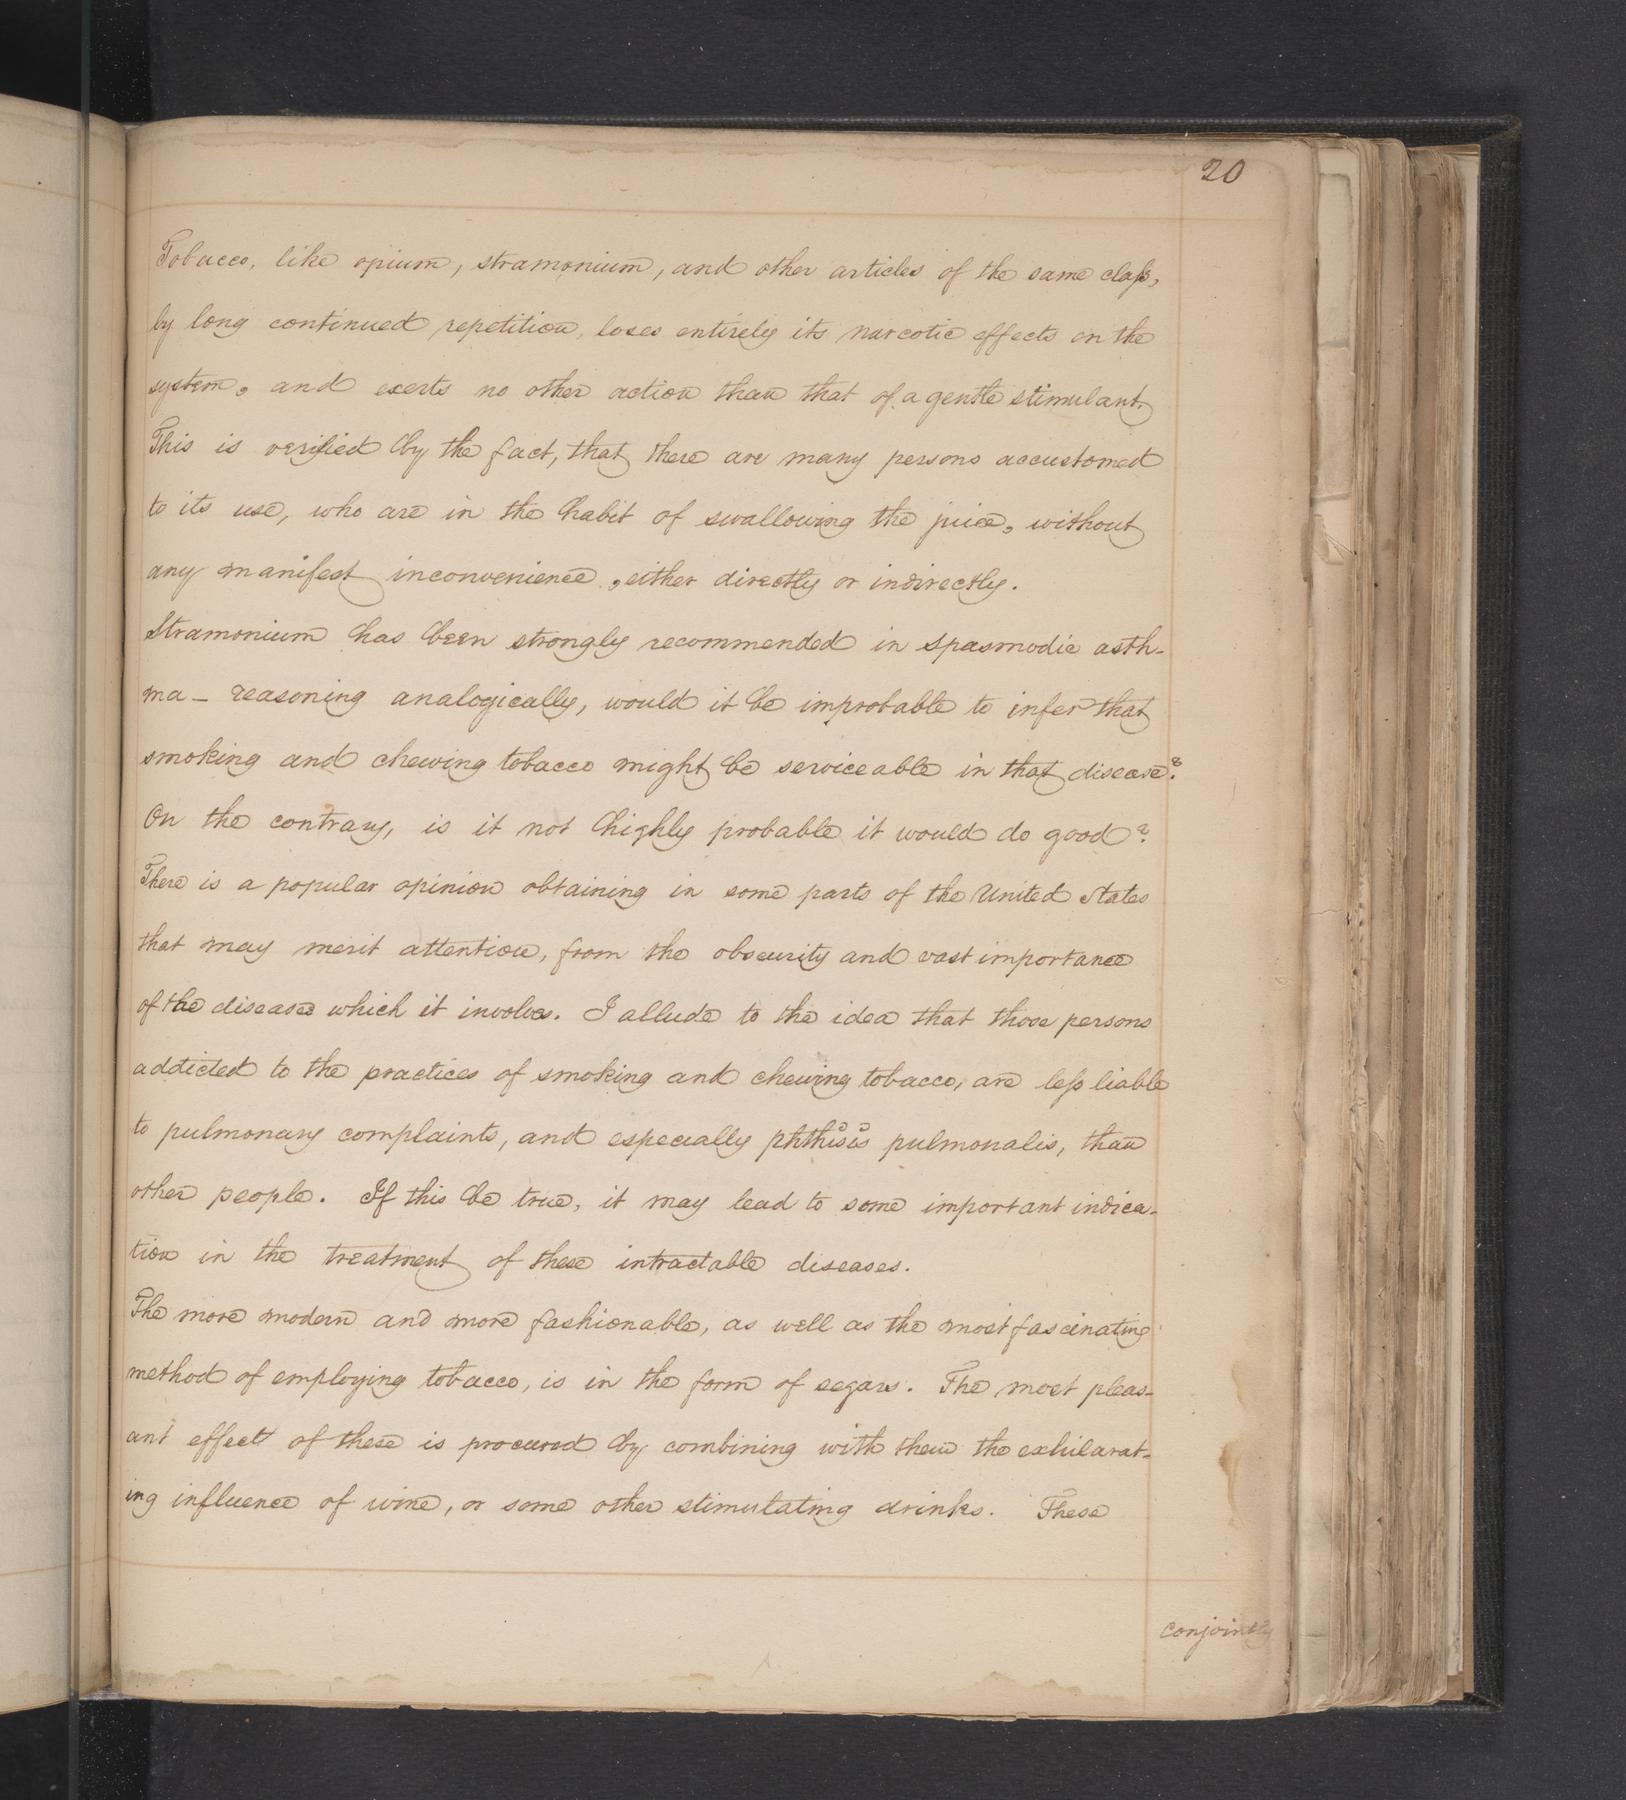 20
Tobacco, like opium, stramonium, and other articles of the same claſs,
by long continued repetition, loses entirely its narcotic effects on the
system, and exerts no other action than that of a gentle stimulant.
This is verified by the fact, that there are many persons accustomed
to its use, who are in the habit of swallowing the juice, without
any manifest inconvenience, either directly or indirectly.
Stramonium has been strongly recommended in spasmodic asth-
ma - reasoning analogically, would it be improbable to infer that
smoking and chewing tobacco might be serviceable in that disease?
On the contrary, is it not highly probable it would do good?
There is a popular opinion obtaining in some parts of the United States
that may merit attention, from the obscurity and vast importance
of the diseases which it involves. I allude to the idea that those persons
addicted to the practices of smoking and chewing tobacco, are leſs liable
to pulmonary complaints, and especially phthisis pulmonalis, than
other people. If this be true, it may lead to some important indica-
tion in the treatment of these intractable diseases.
The more modern and more fashionable, as well as the most fascinating
method of employing tobacco, is in the form of segars. The most pleas-
ant effect of these is procured by combining with them the exhilarat-
ing influence of wine, or some other stimulating drinks. These
conjointly